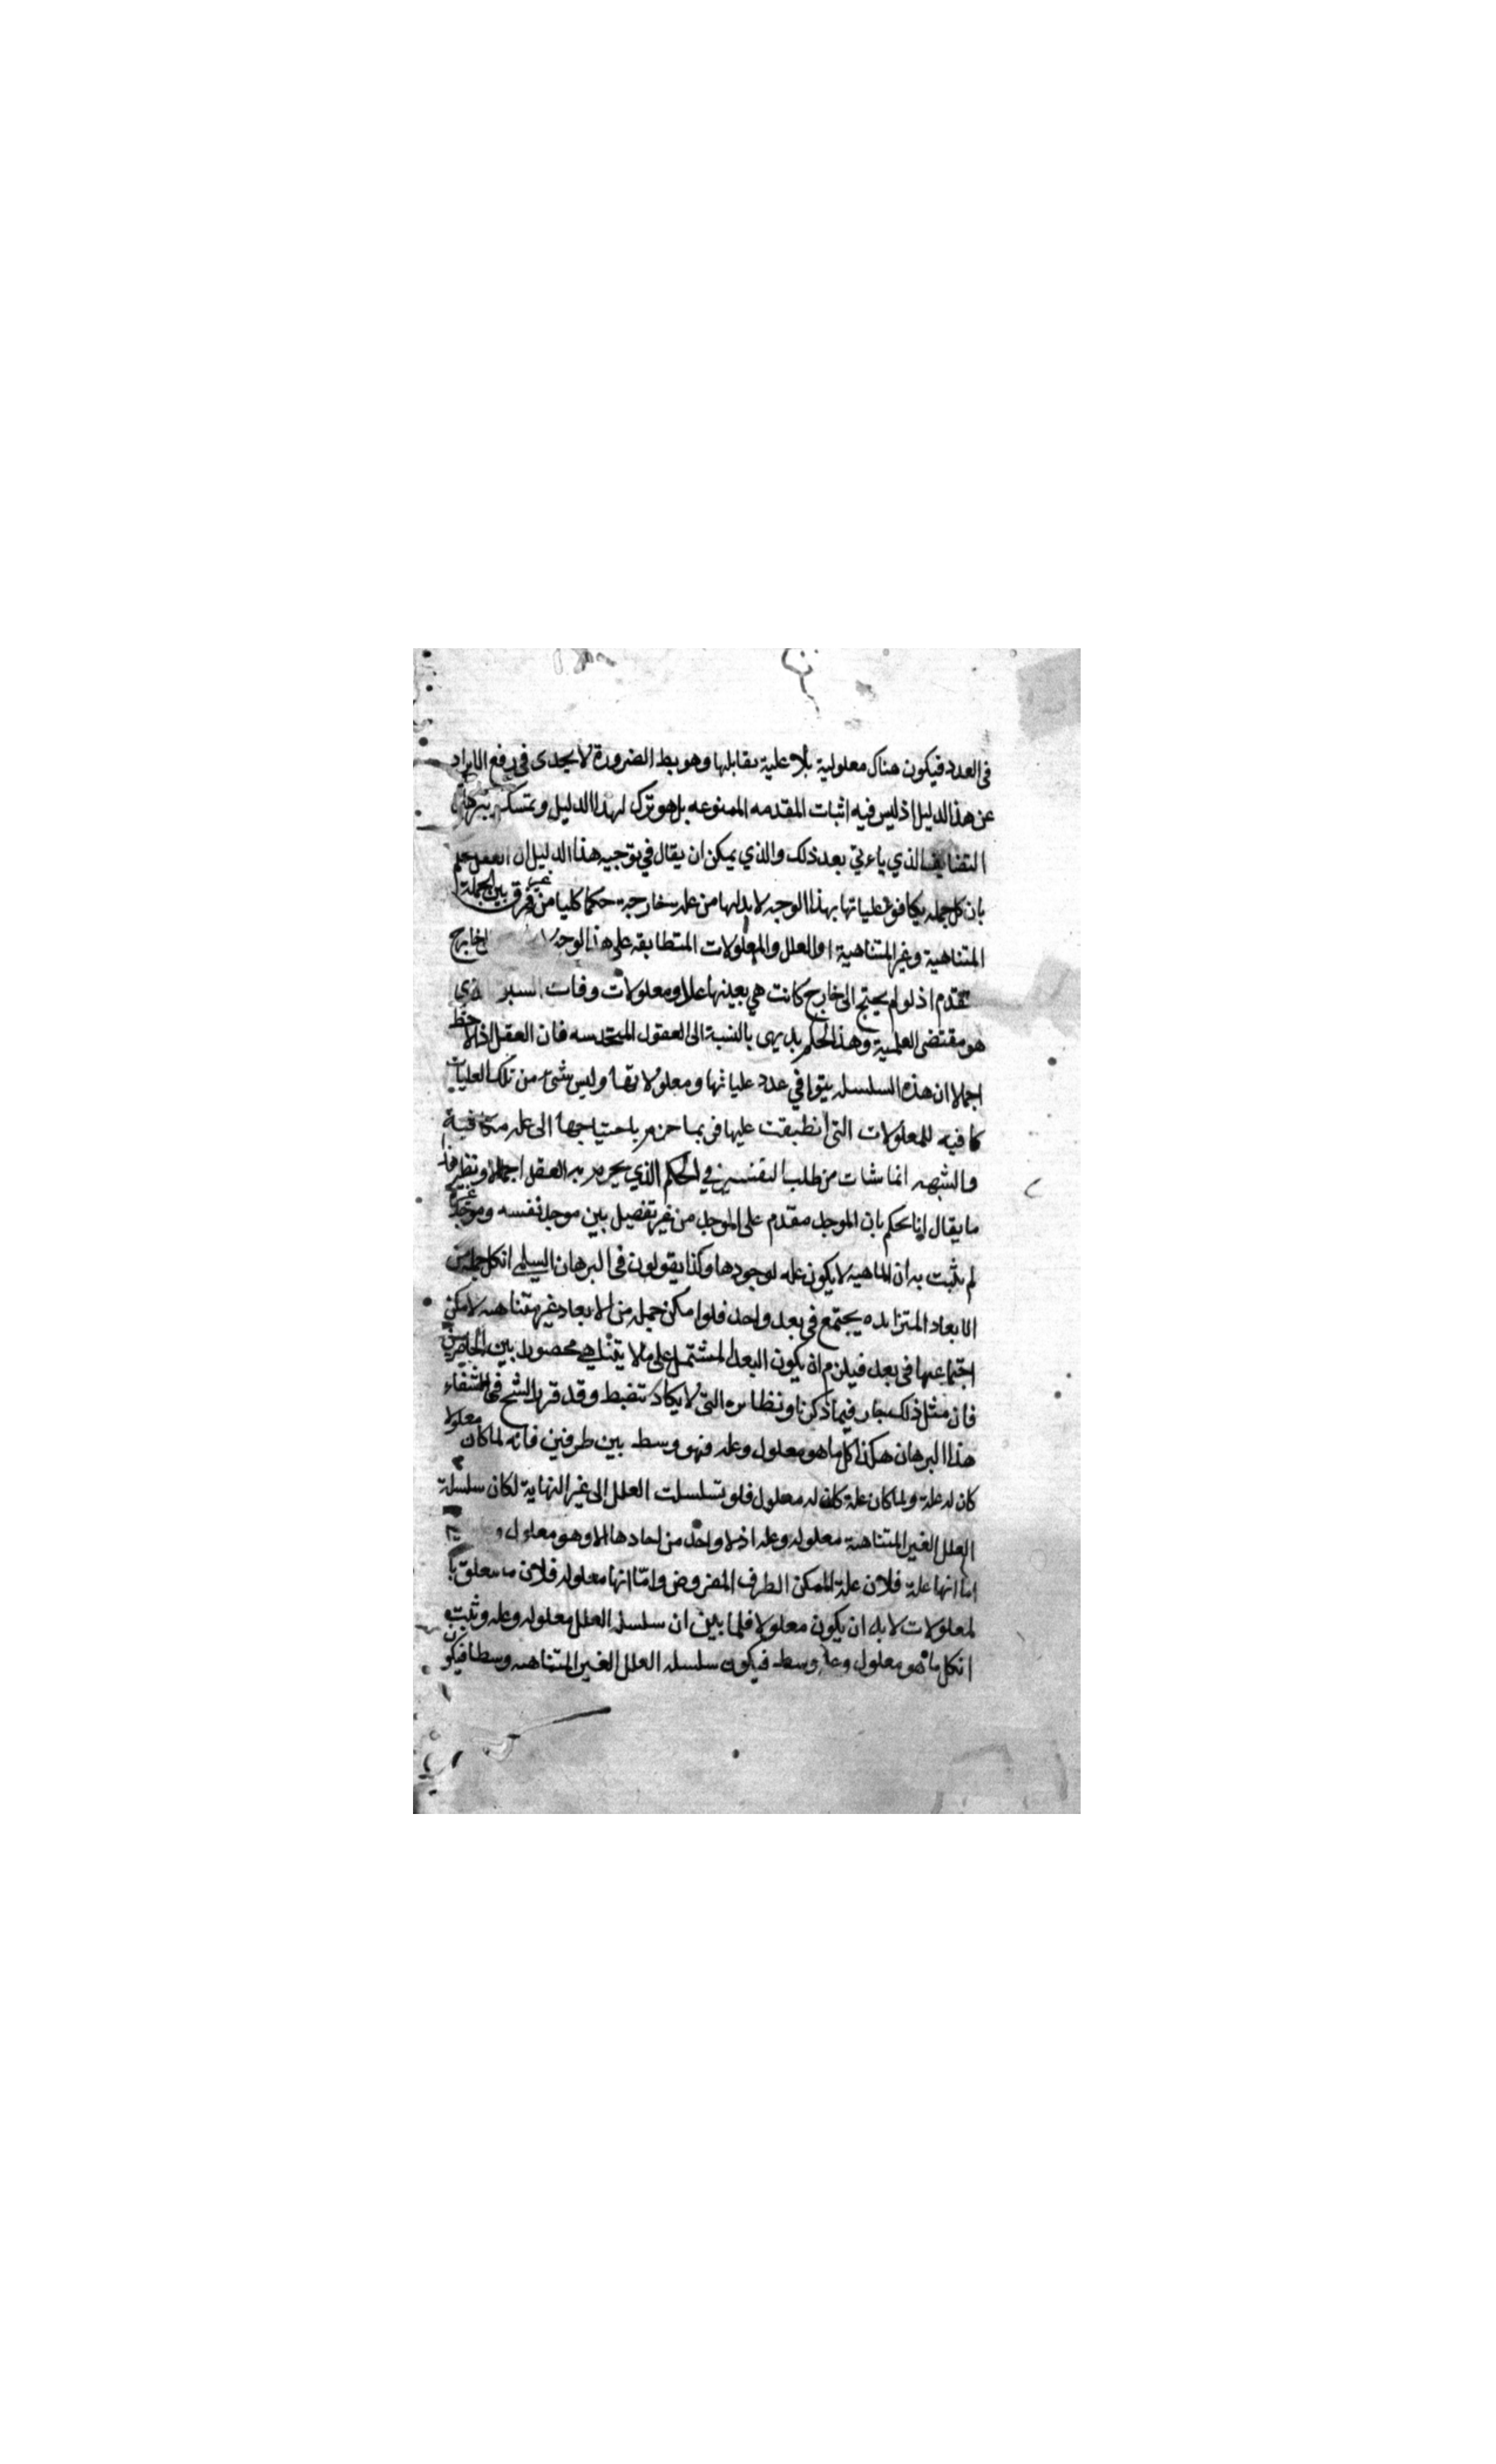 فى العدد فيكون هناك معلولية بلا علية تقابلها وهو بط الضرورة لا يجدى فى رفع الايراد
عن هذا الدليل اذ ليس فيه اثبات المقدمه الممنوعه بل هو ترك لهذا الدليل وتمسك ببرهان
التضايف الذي ياءتي بعد ذلك والذي يمكن ان يقال في توجيه هذا الدليل ان العقل حكم
بان كل جمله يكافو بهذا الوجه لابد لها من عله خارجة حكما كليا من غير فرق بين الجملة
المتناهية وغير المتناهية اذ العلل والمعلولات المتطابقه على هذا الوجه الخارج
تقدم اذ لو لم يحتج الى خارج كانت هي بعينها عللا ومعلولات وفات الذي
هو مقتضى العلمية وهذا الحكم بديهى بالنسبة الى العقول المتحدسه فان العقل اذا لاحظ
اجمالا ان هذه السلسله يتوافي عدد علياتها ومعلولاتها وليس شىء من تلك العليات
كافيه للمعلولات التى انطبقت عليها باحتياجها الى عله
والشبهه انما نشات من طلب التفسير في الحكم الذي يجزم به العقل اجمالا ونظير هذا
ما يقال انا نحكم بان الموجد مقدم على الموجد من غير تفصيل بين موجد نفسه وموجد غيره
لم يثبت به ان الماهيه لا يكون عله لوجودها وكذا يقولون فى البرهان السلمى ان كل جمله من
الابعاد المتزايده يجتمع فى بعد واحد فلو امكن جمله من الابعاد غير متناهيه لامكن
اجتماعها فى بعد فيلزم ان يكون البعد المشتمل على ما لا يتناهي محصورا بين الحاصرين
فان مثل ذلك جار فيما ذكرنا ونظائره التى لا يكاد تنضبط وقد قرر الشيخ فى الشفاء
هذا البرهان هكذا كل ما هو معلول وعله فهو وسط بين طرفين فانه لما كان معلولا
كان له علة ولما كان علة كان له معلول فلو تسلسلت العلل الى غير النهاية لكان سلسلة
العلل الغير المتناهية معلوله وعله اذ لا واحد من احادها الا وهو معلول و
اما انها علة فلان علة الممكن الطرف المفروض واما انها معلوله فلان ما يتعلق با
لمعلولات لابد ان يكون معلولا فلما بين ان سلسله العلل معلوله وعله وثبت
ان كل ما هو معلول وعله وسط فيكون سلسله العلل الغير المتناهيه وسطا فيكون